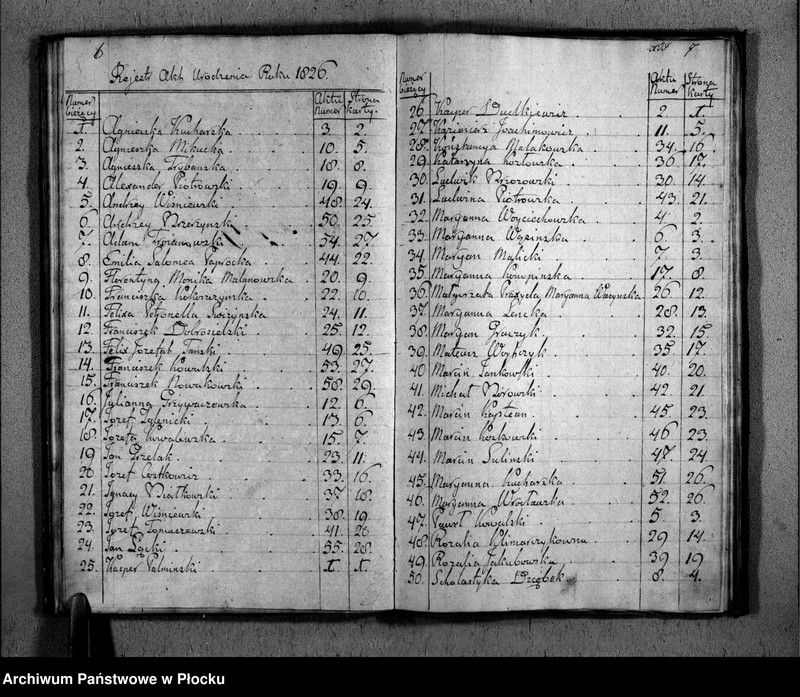 6
Rejestr Akt Urodzenia Roku 1826.
Numer bieżący Aktu numer Strona karty.
1. Agnieszka Kucharska 3. 2.
2. Agnieszka Mikucka 10. 5.
3. Agnieszka 18. 8.
4. Alexander Piotrowski 19. 9.
5. Andrzey Wiśniewski 48. 24.
6. Andrzey 50. 25
7. Adam 54. 27
8. Emilia Salomea Paprocka 44. 22.
9. Florentyna Monika Malanowska 20. 9.
10. Franciszka 22. 10.
11. Felixa Petronella 24. 11.
12. Franciszek Dobrosielski 25. 12.
13. Felix Jozefat Tański 49. 25.
14. Franciszek Kowalski 53. 27.
15. Franciszek Nowakowski 58. 29.
16. Julianna Grzywaczewska 12. 6.
17. Jozef 13. 6.
18. Jozefa Kowalewska 15. 7.
19 Jan Grzelak 23. 11.
20 Jozef 33. 16.
21. Ignacy 37. 18.
22. Jozef Wiśniewski 38. 19.
23. Jozef 41. 20
24. Jan 55. 28.
25. Kacper Palminski 1. 1.
7
Numer bieżący Aktu Numer Strona karty
26 Kacper Dudkiewicz 2. 1.
27 Kazimierz Joachimowicz 11. 5.
28. Konstancya Malakowska 34. 16
29. Katarzyna Kozłowska 36. 17.
30. Ludwik Brzozowski 30. 14.
31. Ludwina Piotrowska 43. 21.
32. Maryanna Woyciechowska 4. 2.
33. Maryanna 6. 3.
34. Maryan Malicki 7. 3.
35. Maryanna 17. 8.
36. Małgorzata Maryanna 26. 12.
37. Maryanna 28. 13.
38. Maryan Graczyk 32. 15.
39. Mateusz 35. 17.
40 Marcin Jankowski 40. 20.
41. Michał 42. 21.
42. Marcin 45. 23.
43 Marcin 46 23.
44. Marcin Suliński 47. 24.
45. Maryanna Kucharska 51. 26.
46. Maryanna Wrocławska 52. 26.
47. Paweł Kowalski 5. 3.
48. Rozalia 29 14.
49. Rozalia Jakubowska 39 19
50. Scholastyka 8. 4.
Archiwum Państwowe w Płocku